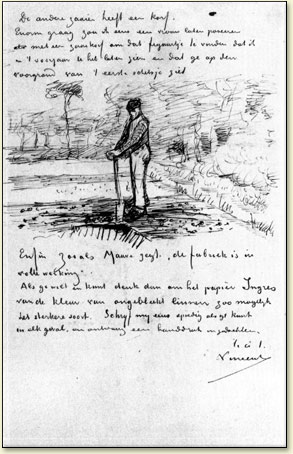 De andere zaaier heeft een korf.
Enorm graag zou ik eens een vrouw laten poseeren
met een zaaikorf om dat figuurtje te vinden dat ik
in 't voorjaar U heb laten zien en dat ge op den
voorgrond van 't eerste schetsje ziet
Enfin zooals Mauve zegt, de fabriek is in
volle werking.
Als ge wil en kunt denk dan om het papier Ingres
van de kleur van ongebleekt linnen zoo mogelijk
het sterkere soort. Schrijf mij eens spoedig als ge kunt
in elk geval, en ontvang een handdruk in gedachten.
t. à t.
Vincent